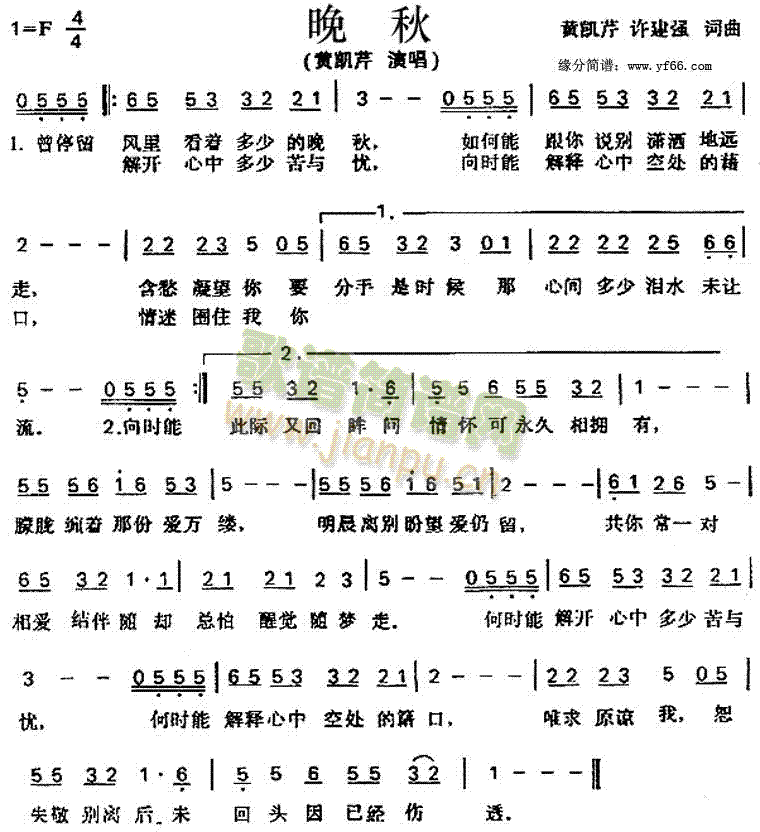 1=F 4/4
晚 秋
(黄凯芹 演唱)
黄凯芹 许建强 词曲
缘分简谱：www.yf66.com
0 5 5 5 ‖: 6 5 5 3 3 2 2 1 | 3 - - 0 5 5 5 | 6 5 5 3 3 2 2 1 |
1. 曾停留 风里 看着 多少 的晚 秋， 如何能 跟你 说别 潇洒 地远
解开 心中 多少 苦与 忧， 向时能 解释 心中 空处 的藉
1.
2 - - - | 2 2 2 3 5 0 5 | 6 5 3 2 3 0 1 | 2 2 2 2 2 5 6 6 |
走， 含愁 凝望 你 要 分手 是时 候 那 心间 多少 泪水 未让
口， 情迷 困住 我 你
2.
5 - - 0 5 5 5 :‖ 5 5 3 2 1 · 6 | 5 5 6 5 5 3 2 | 1 - - - |
流. 2.向时能 此际 又回 眸 问 情 怀 可 永久 相拥 有，
歌谱简谱网
www.jianpu.cn
5 5 5 6 1 6 5 3 | 5 - - | 5 5 5 6 1 6 5 1 | 2 - - - | 6 1 2 6 5 - |
朦胧 缠着 那份 爱万 缕， 明晨离别盼望爱仍留， 共你 常一 对
6 5 3 2 1 · 1 | 2 1 2 1 2 3 | 5 - - 0 5 5 5 | 6 5 5 3 3 2 2 1 |
相爱 结伴 随 却 总怕 醒觉 随 梦 走. 何时能 解开 心中 多少 苦与
3 - - 0 5 5 5 | 6 5 5 3 3 2 2 1 | 2 - - - | 2 2 2 3 5 0 5 |
忧， 何时能 解释心中 空处 的藉 口， 唯求 原谅 我， 恕
5 5 3 2 1 · 6 | 5 5 6 5 5 3 2 | 1 - - - ‖
失敬 别离 后，未 回 头 因 已经 伤 透.